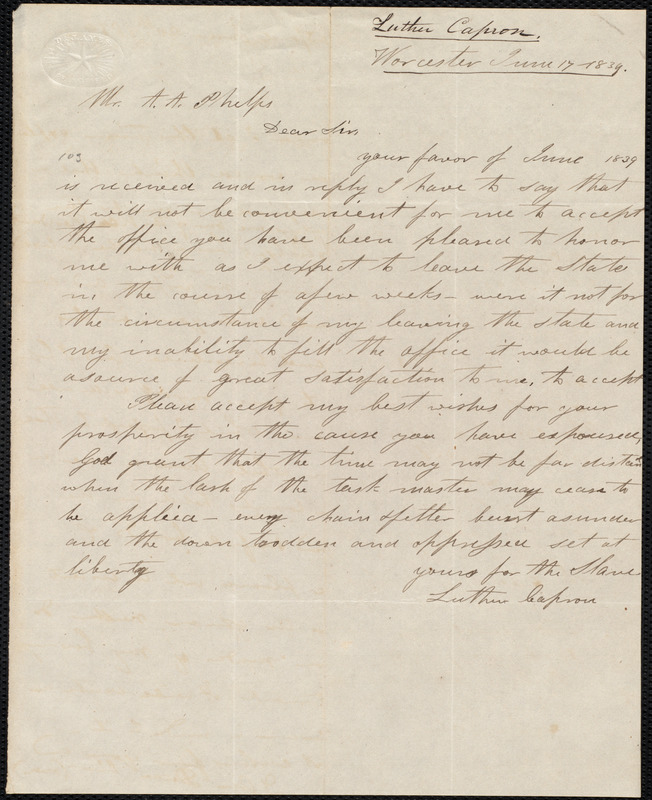 Luther Capron.
Worcester June 17 1839.
Mr. A. A. Phelps
Dear Sir,
103 your favor of June 1839
is received and in reply I have to say that
it will not be convenient for me to accept
the office you have been pleased to honor
me with as I expect to leave the State
in the course of a few weeks - were it not for
the circumstance of my leaving the state and
my inability to fill the office it would be
a source of great satisfaction to me, to accept
Please accept my best wishes for your
prosperity in the cause you have espoused,
God grant that the time may not be far distant
when the lash of the task master may cease to
be applied - every chain & fetter burst asunder
and the down trodden and oppressed set at
liberty yours for the Slave
Luther Capron